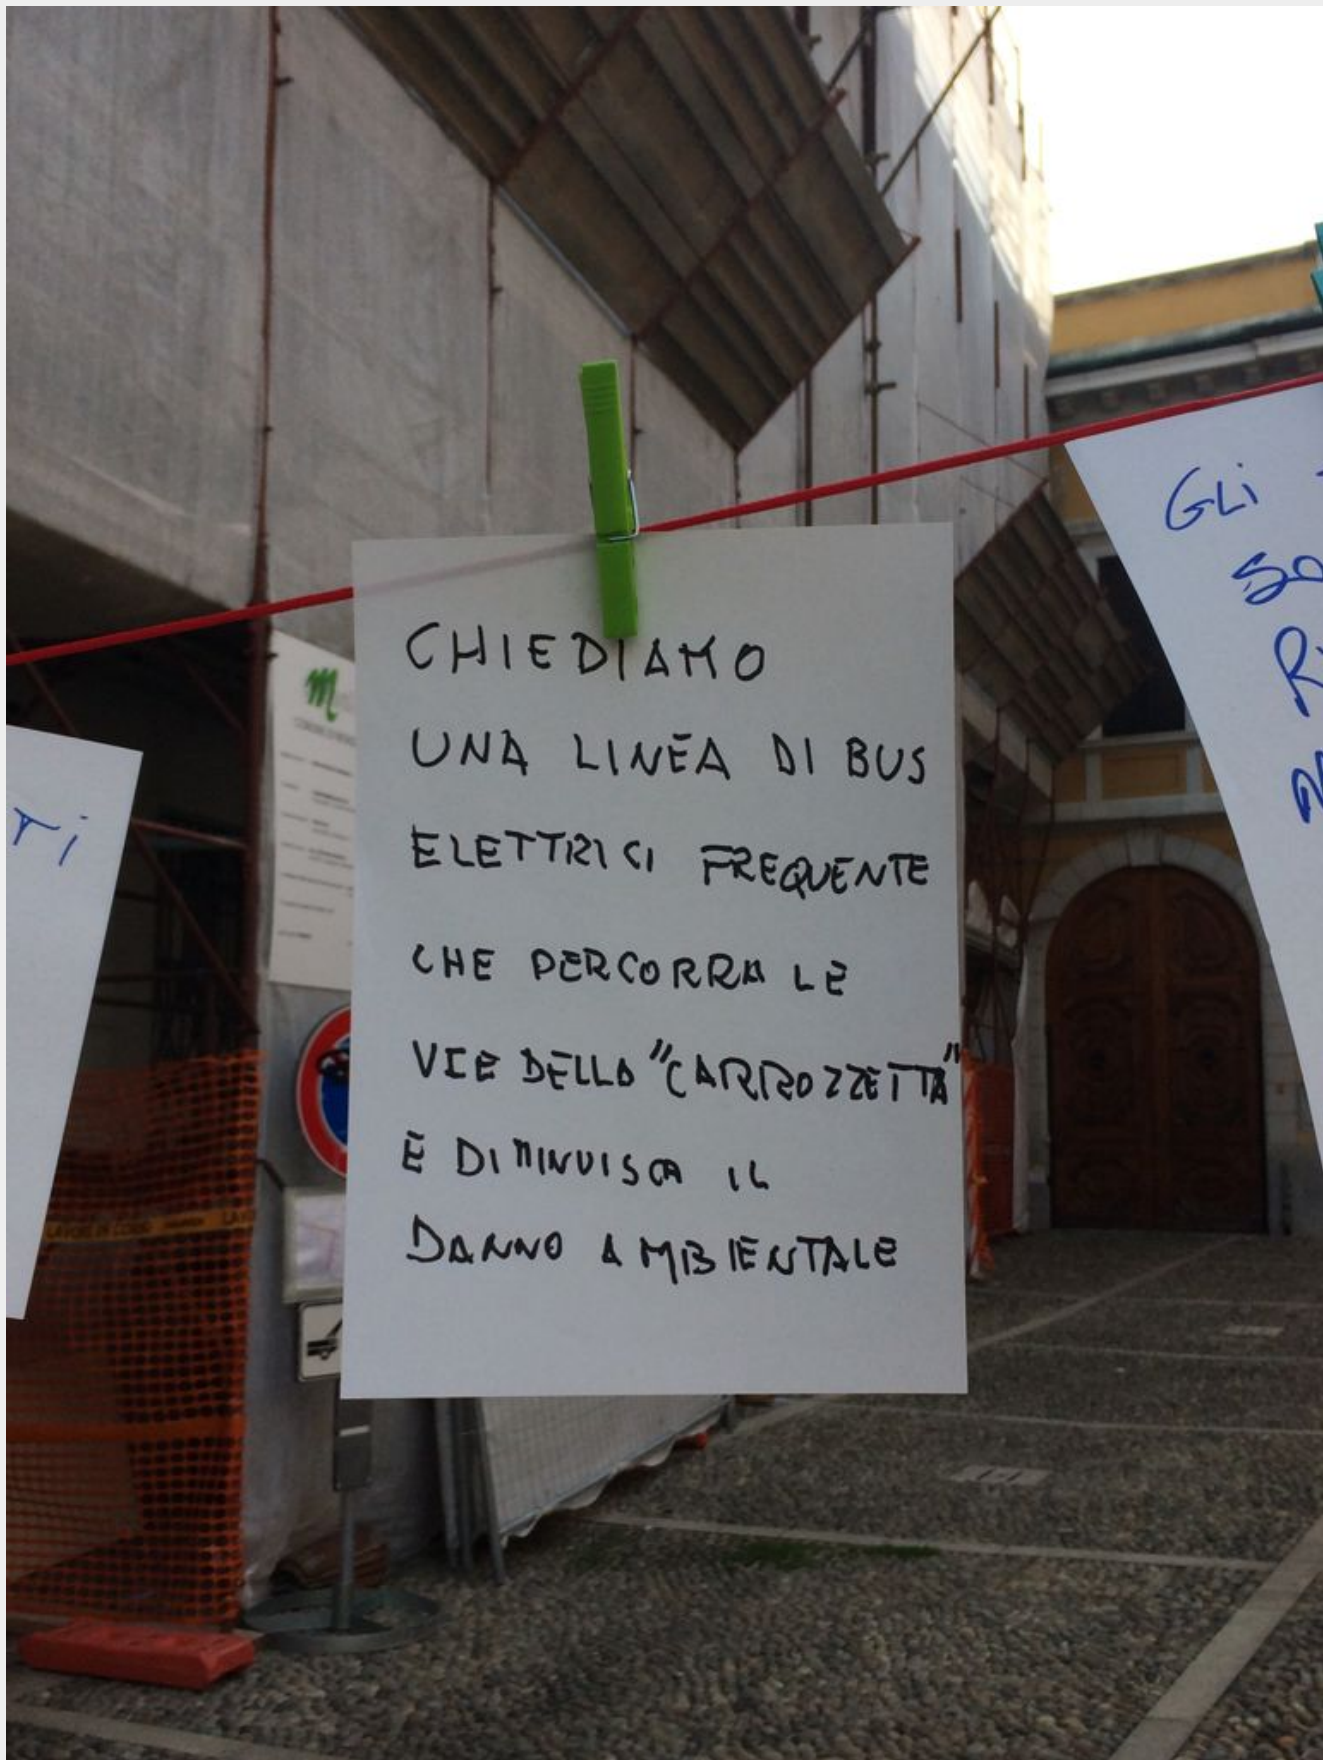 CHIEDIAMO
UNA LINEA DI BUS
ELETTRICI FREQUENTE
CHE PERCORRA LE
VIE DELLA "CARROZZETTA"
E DIMINUISCA IL
DANNO AMBIENTALE
GLI